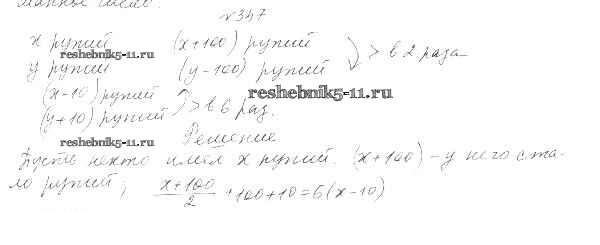 манное число.
№347
x рупий (x+100) рупий
> в 2 раза
reshebnik5-11.ru
y рупий (y-100) рупий
(x-10) рупий
reshebnik5-11.ru
(y+10) рупий > в 6 раз.
reshebnik5-11.ru
Решение
Пусть некто имел x рупий. (x+100) - у него ста-
ло рупий, x+100/2 +100+10=6(x-10)